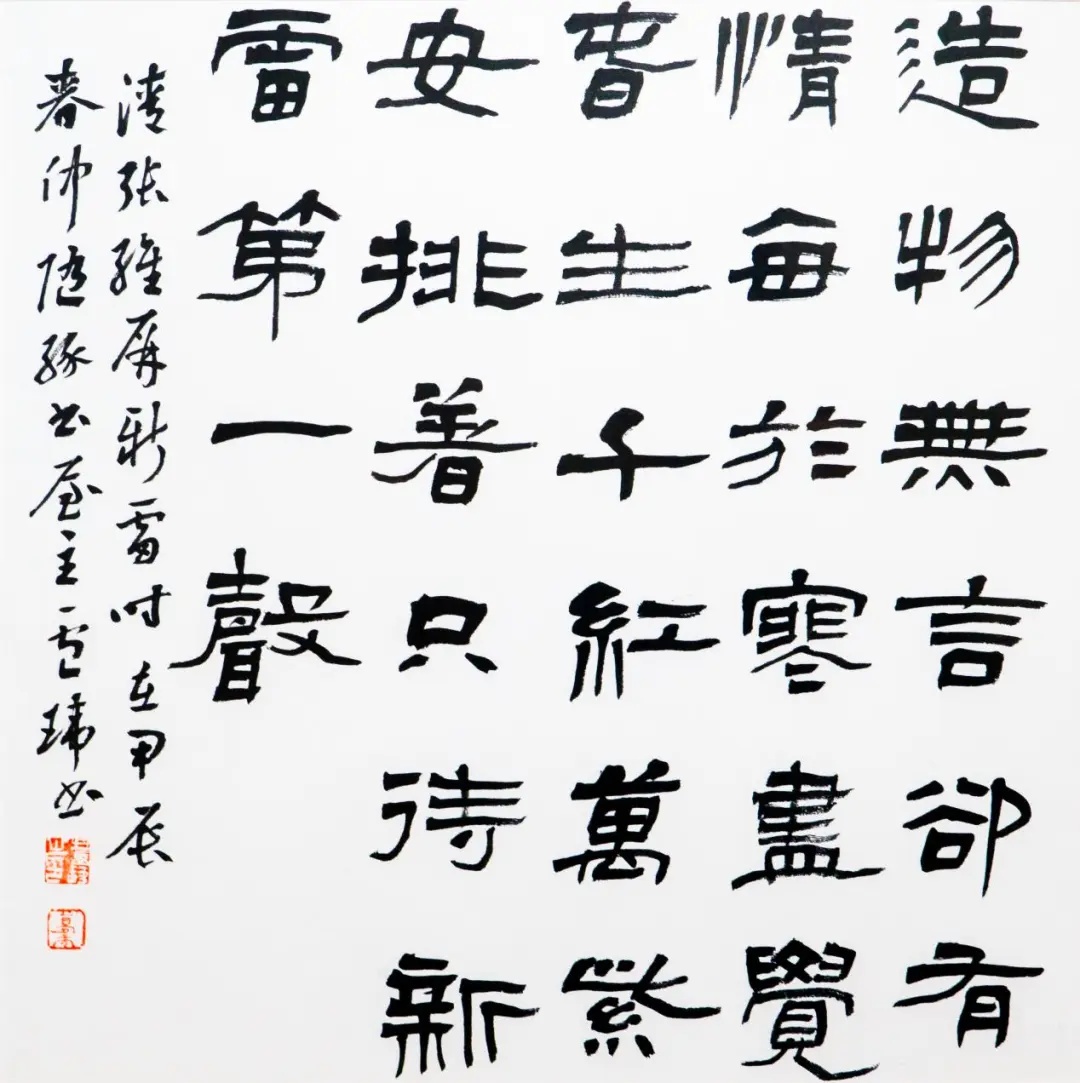 造物無言卻有
情每於寒盡覺
春生千紅萬紫
安排着只待新
雷第一聲
清張維屏新雷时在甲辰
春仲书屋主玮书